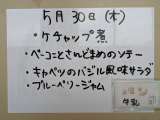 5月30日(木)
・ケチャップ煮
・ベーコンとさんどまめのソテー
・キャベツのバジル風味サラダ
・ブルーベリージャム
牛乳